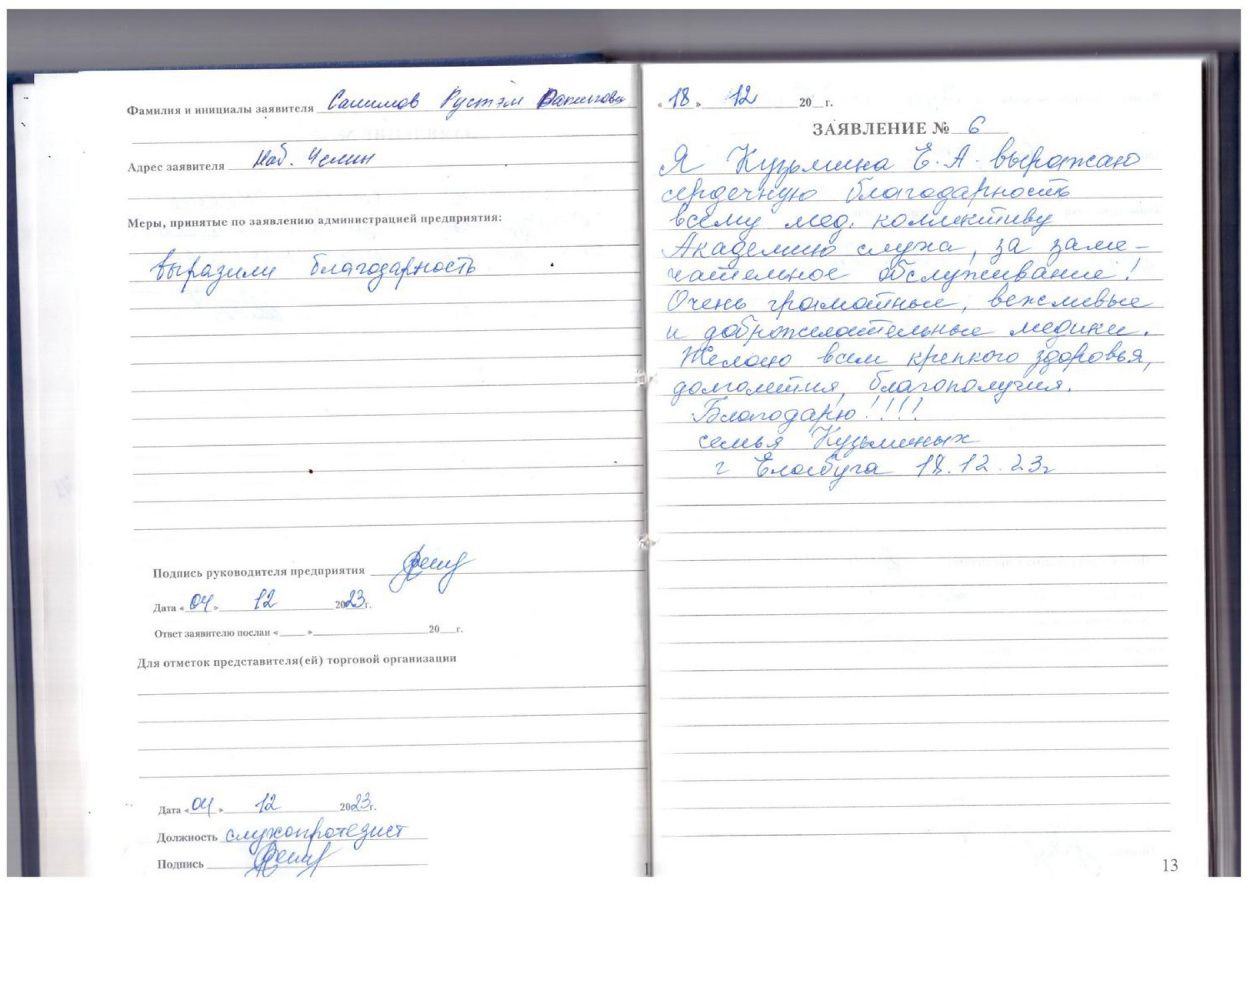 Фамилия и инициалы заявителя Салимов Рустэм
Адрес заявителя Наб. Челны
Меры, принятые по заявлению администрацией предприятия:
выразили благодарность
Подпись руководителя предприятия
Дата «04» 12 2023г.
Ответ заявителю послан «___» ___ 20__г.
Для отметок представителя(ей) торговой организации
Дата «04» 12 2023г.
Должность слухопротезист
Подпись
«18» 12 20__г.
ЗАЯВЛЕНИЕ № 6
Я Кузьмина Е. А. выражаю
сердечную благодарность
всему мед. коллективу
Академию слуха, за заме-
чательное обслуживание!
Очень грамотные, вежливые
и доброжелательные медики.
Желаю всем крепкого здоровья,
долголетия, благополучия.
Благодарю!!!!
семья Кузьминых
г Елабуга 18.12.23г
13